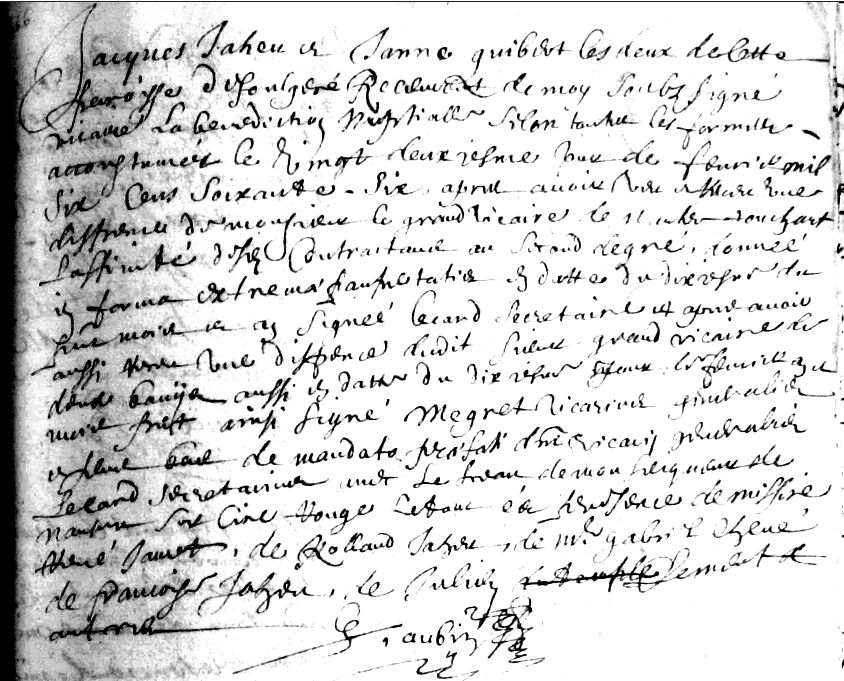 Jacques Jaheu et Janne guibert les deux de cette
paroisse de Fougeré Receurent de moy soubz signé
vicaire La benediction nuptialle selon toutes les formes
accoustumées le vingt deuxiesme jour de feuvrier mil
six cens soixante - six, apres avoir veu une
dispence de monsieur le grand vicaire de nantes touchant
L'affinité desd Contractans au second degré, donnée
in forma extrema paupertatis en datte du dixiesme du
moies et an signée Lecand Secretaire et apres avoir
aussi veu une dispence dudit sieur grand vicaire de
deux banys aussi en datte du dixiesme jour de feuvrier an et
ainsi signé Megret vicarius generalis
et plus bas de mandato prefati dni vicarii generalis
Lecand secretarius avec Le sceau de monseigneur de
nantes sur Cire Rouge Le tout en presence de missire
René Jamet, de Rolland Jaheu, de Mre gabriel
de francoise Jaheu, de Julien et
autres
aubin